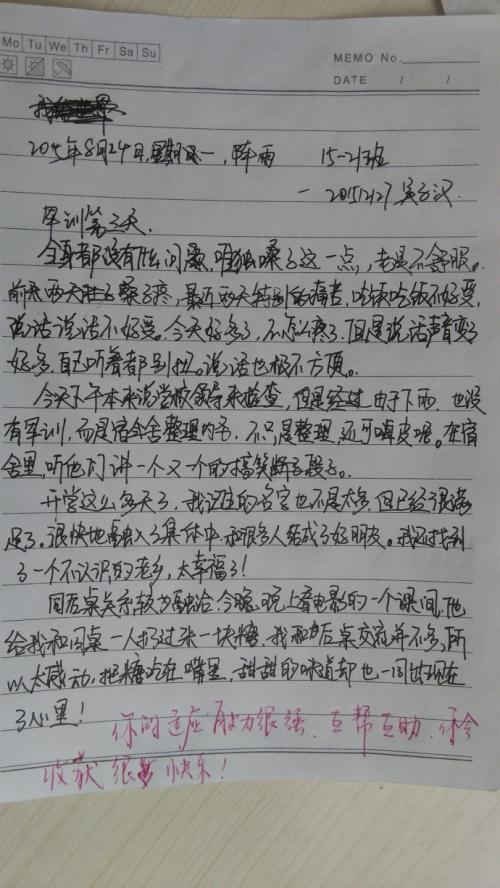 Mo Tu We Th Fr Sa Su
MEMO No.
DATE / /
2015年8月24日,星期一,阵雨 15-21班
一 20152127 吴子汉
军训第三天.
全身都没有什么问题,唯独嗓子这一点,老是不舒服。
前来两天肚子嗓子疼,最近两天特别的痛苦,吃饭吃饭不好受,
说话说话不好受。今天好多了,不怎么疼了,但是说话声音变了
好多,自己听着都别扭。说话也极不方便。
今天下午本来说学校领导来检查,但是经过由于下雨,也没
有军训,而是宿舍整理内务,不只是整理,还可嗨皮呢。在宿
舍里,听他们讲一个又一个的搞笑段子。
开学这么多天了,我记住的名字也不是太多,但已经很满
足了。很快地融入了集体中,和很多人结成了好朋友。我还找到
了一个不认识的老乡,太幸福了!
同后桌关系较为融洽,今晚晚上看电影的一个课间,他
给我和同桌一人扔过来一块糖,我和后桌交流并不多,所
以太感动,把糖吃在嘴里,甜甜的味道却也一同出现在
了心里!
你的适应能力很强,互帮互助,你会
收获很多快乐!